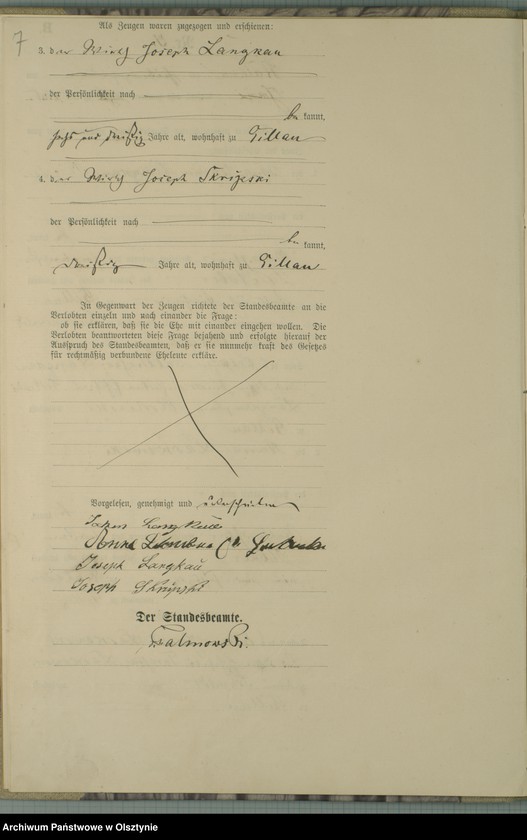 7
Als Zeugen waren zugezogen und erschienen:
3. der Wirth Joseph Langkau
der Persönlichkeit nach
be kannt,
sechs und dreißig Jahre alt, wohnhaft zu Gillau
4. der Wirth Joseph Skrizeski
der Persönlichkeit nach
be kannt,
dreißig Jahre alt, wohnhaft zu Gillau
In Gegenwart der Zeugen richtete der Standesbeamte an die
Verlobten einzeln und nach einander die Frage:
ob sie erklären, daß sie die Ehe mit einander eingehen wollen. Die
Verlobten beantworteten diese Frage bejahend und erfolgte hierauf der
Ausspruch des Standesbeamten, daß er sie nunmehr kraft des Gesetzes
für rechtmäßig verbundene Eheleute erkläre.
Vorgelesen, genehmigt und unterschrieben
Langkau
Anna
Joseph Langkau
Joseph
Der Standesbeamte.